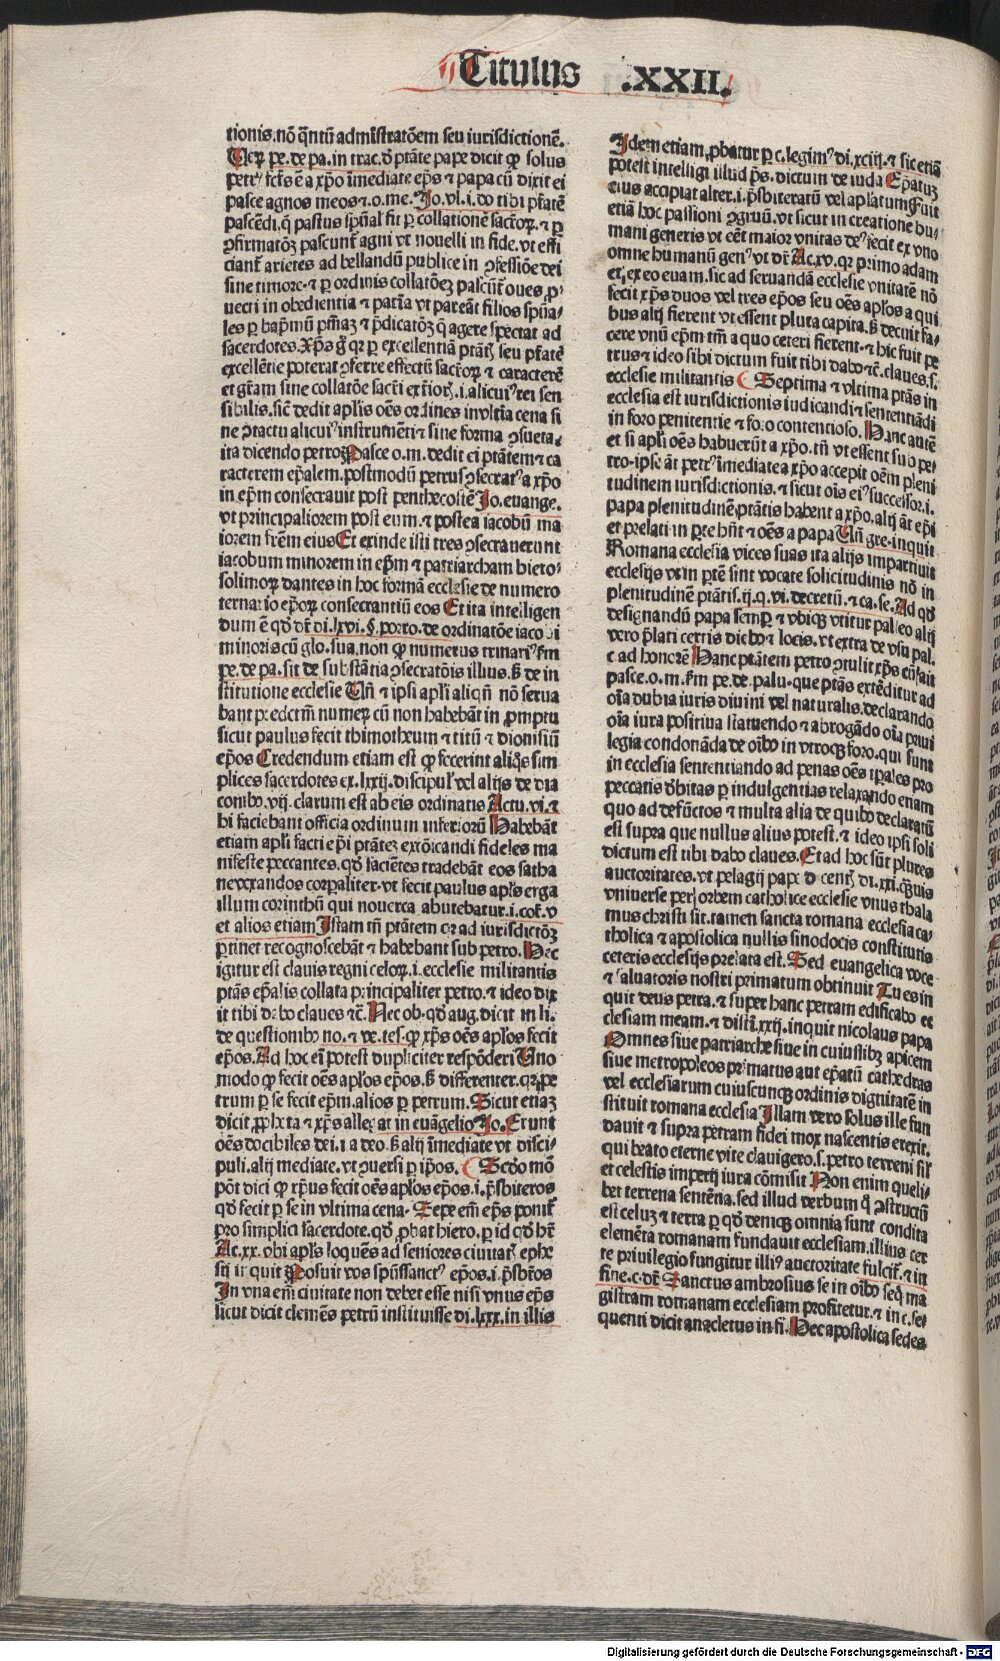 Titulus .XXII.
tionis. nõ q̃ntũ admĩstratõem seu iurisdictionẽ.
pe. de pa. in trac. đ ptãte pape dicit ꝙ solus
petrꝰ fct̃s ẽ a xp̃o ĩmediate ep̃s ⁊ papa cũ dixit ei
pasce agnos meos ⁊ o. me. Jo. vl. i. do tibi pt̃atẽ
pascẽdi. q̃ pastus sp̃ual̃ fit ꝑ collationẽ sact̃oꝝ. ⁊ ꝑ
ꝯfirmatõꝫ pascunt̃ agni vt nouelli in fide. vt effi
ciant̃ arietes ad bellandũ publice in ꝯfessiõe dei
sine timore. ⁊ ꝑ ordinis collatõeꝫ pascũt̃ oues ꝓ
uecti in obedientia ⁊ patr̃ia vt pareãt filios sp̃ua
les ꝑ bap̃mũ pm̃aꝫ ⁊ p̃dicatõꝫ q̃ agere spectat ad
sacerdotes. Xp̃s g̊ qꝛ ꝑ excellentiã ptãt̃ seu pt̃atẽ
excellẽtie poterat ꝯferre effectũ sact̃oꝝ ⁊ caracterẽ
et gr̃am sine collatõe sacr̃i ext̃ioris. i. alicuiꝰ rei sen
sibilis. sic̃ dedit apl̃is oẽs ordines in vltia cena si
ne ꝯtactu alicuiꝰ instrumẽti ⁊ sine forma ꝯsueta.
ita dicendo petro Pasce o. m. dedit ei ptãtem ⁊ ca
racterem ep̃alem. postmodũ petrus ꝯsecratꝰ a xp̃o
in ep̃m consecrauit post penthecostẽ Jo. euange.
vt principaliorem post eum. ⁊ postea iacobũ ma
iorem fr̃em eius Et exinde isti tres ꝯsecrauerunt
iacobum minorem in ep̃m ⁊ patriarcham hiero
solimoꝝ dantes in hoc formã ecclesie de numero
ternario ep̃oꝝ consecrantiũ eos Et ita intelligen
dum ẽ qđ dr̃ di. lxvi. §. porro. de ordinatõe iacobi
minoris cũ glo. sua. non ꝙ numerus trinariꝰ ẜm
pe. de pa. sit de substãtia ꝯsecratõis illius. ẞ de in
stitutione ecclesie Vñ ⁊ ipsi apl̃i aliqñ nõ serua
bant predictm̃ numeꝝ cũ non habebãt in ꝓmptu
sicut paulus fecit thimotheum ⁊ titũ ⁊ dionisiũ
ep̃os Credendum etiam est ꝙ fecerint aliq̃s sim
plices sacerdotes ex. lxxij. discipul̃ vel alijs de dia
conibꝰ. vij. clarum est ab eis ordinatis Actu. vi. ⁊
hi faciebant officia ordinum inferiorũ Habebãt
etiam apl̃i facti ep̃i ptãteꝫ excõicandi fideles ma
nifeste peccantes. qđ faciẽtes tradebãt eos satha
ne vexandos corꝑaliter. vt fecit paulus apl̃s erga
illum corinthũ qui nouerca abutebatur. i. coꝛ̃. v
et alios etiam Istam tñ ptãtem qr̃ ad iurisdictõꝫ
ꝑtinet recognoscebãt ⁊ habebant sub petro. Hec
igitur est clauis regni celoꝝ. i. ecclesie militantis
ptãs ep̃alis collata principaliter petro. ⁊ ideo dix
it tibi dabo claues ⁊c̃. Nec ob. qđ aug. dicit in li.
de questionibꝰ no. ⁊ ve. tes. ꝙ xp̃s oẽs apl̃os fecit
ep̃os. Ad hoc ei̅ potest dupliciter respõderi Uno
modo ꝙ fecit oẽs apl̃os ep̃os. ẞ differenter. qꝛ pe
trum ꝑ se fecit ep̃m. alios ꝑ petrum. Sicut etiaꝫ
dicit ꝓph̃eta ⁊ xp̃s allegat in euãgelio Jo. Erunt
oẽs docibiles dei. i a deo. ẞ alij ĩmediate vt disci
puli. alij mediate. vt ꝯuersi ꝑ ip̃os. Scđo mõ
põt dici ꝙ xp̃us fecit oẽs apl̃os ep̃os. i. p̃sbiteros
qđ fecit ꝑ se in vltima cena. Sepe em̃ ep̃s ponit̃
pro simplici sacerdote. qđ ꝓbat hiero. ꝑ id qđ hr̃
Ac. xx. vbi apl̃s loquẽs ad seniores ciuitat̃ ephe
sij inquit Posuit vos sp̃ussanctꝰ ep̃os. i. p̃sbr̃os
In vna em̃ ciuitate non debet esse nisi vnus ep̃s
sicut dicit clemẽs petrũ instituisse di. lxxx. in illis
Idem etiam ꝓbatur ꝑ c. legimꝰ di. xciij. ⁊ sic etiã
potest intelligi illud p̃s. dictum de iuda Ep̃atuꝫ
eius accipiat alter. i. p̃sbiteratũ vel apl̃atum Fuit
etiã hoc passioni ꝯgruũ. vt sicut in creatione hu
mani generis vt cẽt maior vnitas deꝰ fecit ex vno
omne humanũ genꝰ vt dr̃ Ac. xv. qꝛ primo adam
et. ex eo euam. sic ad seruandã ecclesie vnitatẽ nõ
fecit xp̃s duos vel tres ep̃os seu oẽs apl̃os a qui
bus alij fierent vt essent plura capita. ẞ decuit fa
cere vnũ ep̃m tm̃ a quo ceteri fierent. ⁊ hic fuit pe
trus ⁊ ideo sibi dictum fuit tibi dabo ⁊c̃. claues. s.
ecclesie militantis Septima ⁊ vltima ptãs in
ecclesia est iurisdictionis iudicandi ⁊ sententiãdi
in foro penitentie ⁊ foro contentioso. Hanc autẽ
et si apl̃i oẽs habuerũt a xp̃o. tñ vt essent sub pe
tro. ipse ãt petrꝰ ĩmediate a xp̃o accepit oẽm pleni
tudinem iurisdictionis. ⁊ sicut oĩs eiꝰ successor. i.
papa plenitudinẽ ptãtis habent a xp̃o. alij ãt ep̃i
et prelati in ꝑte hñt ⁊ oẽs a papa Vñ gre. inquit
Romana ecclesia vices suas ita alijs impartiuit
ecclesijs vt in ꝑtẽ sint vocate solicitudinis nõ in
plenitudinẽ ptãtis. ij. q. vi. decretũ. ⁊ ca. se. Ad qđ
designandũ papa semꝑ ⁊ vbiqꝫ vtitur palleo alij
vero p̃lati certis diebꝰ ⁊ locis. vt extra de vsu pal.
c ad honorẽ Hanc ptãtem petro ꝯtulit xp̃s cũ ait
pasce. o. m. ẜm pe. de. palu. que ptãs extẽditur ad
oĩa dubia iuris diuini vel naturalis. declarando
oĩa iura positiua statuendo ⁊ abrogãdo oĩa priui
legia condonãda de oĩbꝰ in vtroqꝫ foro. qui sunt
in ecclesia sententiando ad penas oẽs tp̃ales pro
peccatis đbitas ꝑ indulgentias relaxando etiam
quo ad defũctos ⁊ multa alia de quibꝰ declaratũ
est supra que nullus alius potest. ⁊ ideo ipsi soli
dictum est tibi dabo claues. Et ad hoc sũt plures
auctoritates. vt pelagij pape di. xxi. q̃uis
vniuerse per orbem catholice ecclesie vnus thala
mus christi sit. tamen sancta romana ecclesia ca
tholica ⁊ apostolica nullis sinodocis constitutis
ceteris ecclesijs prelata est. Sed euangelica voce
⁊ saluatoris nostri primatum obtinuit Tu es in
quit deus petra. ⁊ super hanc petram edificabo ec
clesiam meam. ⁊ disti. xxij. inquit nicolaus papa
Omnes siue patriarche siue in cuiuslibꝫ apicem
siue metropoleos primatus aut ep̃atũ cathedras
vel ecclesiarum cuiuscunqꝫ ordinis dignitatẽ in
stituit romana ecclesia Illam vero solus ille fun
dauit ⁊ supra petram fidei mox nascentis erexit.
qui beato eterne vite clauigero. s. petro terreni sil̃
et celestis imperij iura cõmisit Non enim queli
bet terrena sentẽtia. sed illud verbum q̊ ꝯstructũ
est celuꝫ ⁊ terra ꝑ qđ deniqꝫ omnia sunt condita
elemẽta romanam fundauit ecclesiam. illius cer
te priuilegio fungitur illiꝰ auctoritate fulcit̃. ⁊ in
fine. c. dr̃ Sanctus ambrosius se in oĩbꝰ seq̃ ma
gistram romanam ecclesiam profitetur. ⁊ in c. se
quenti dicit anacletus in fi. Hec apostolica sedes
Digitalisierung gefördert durch die Deutsche Forschungsgemeinschaft - DFG